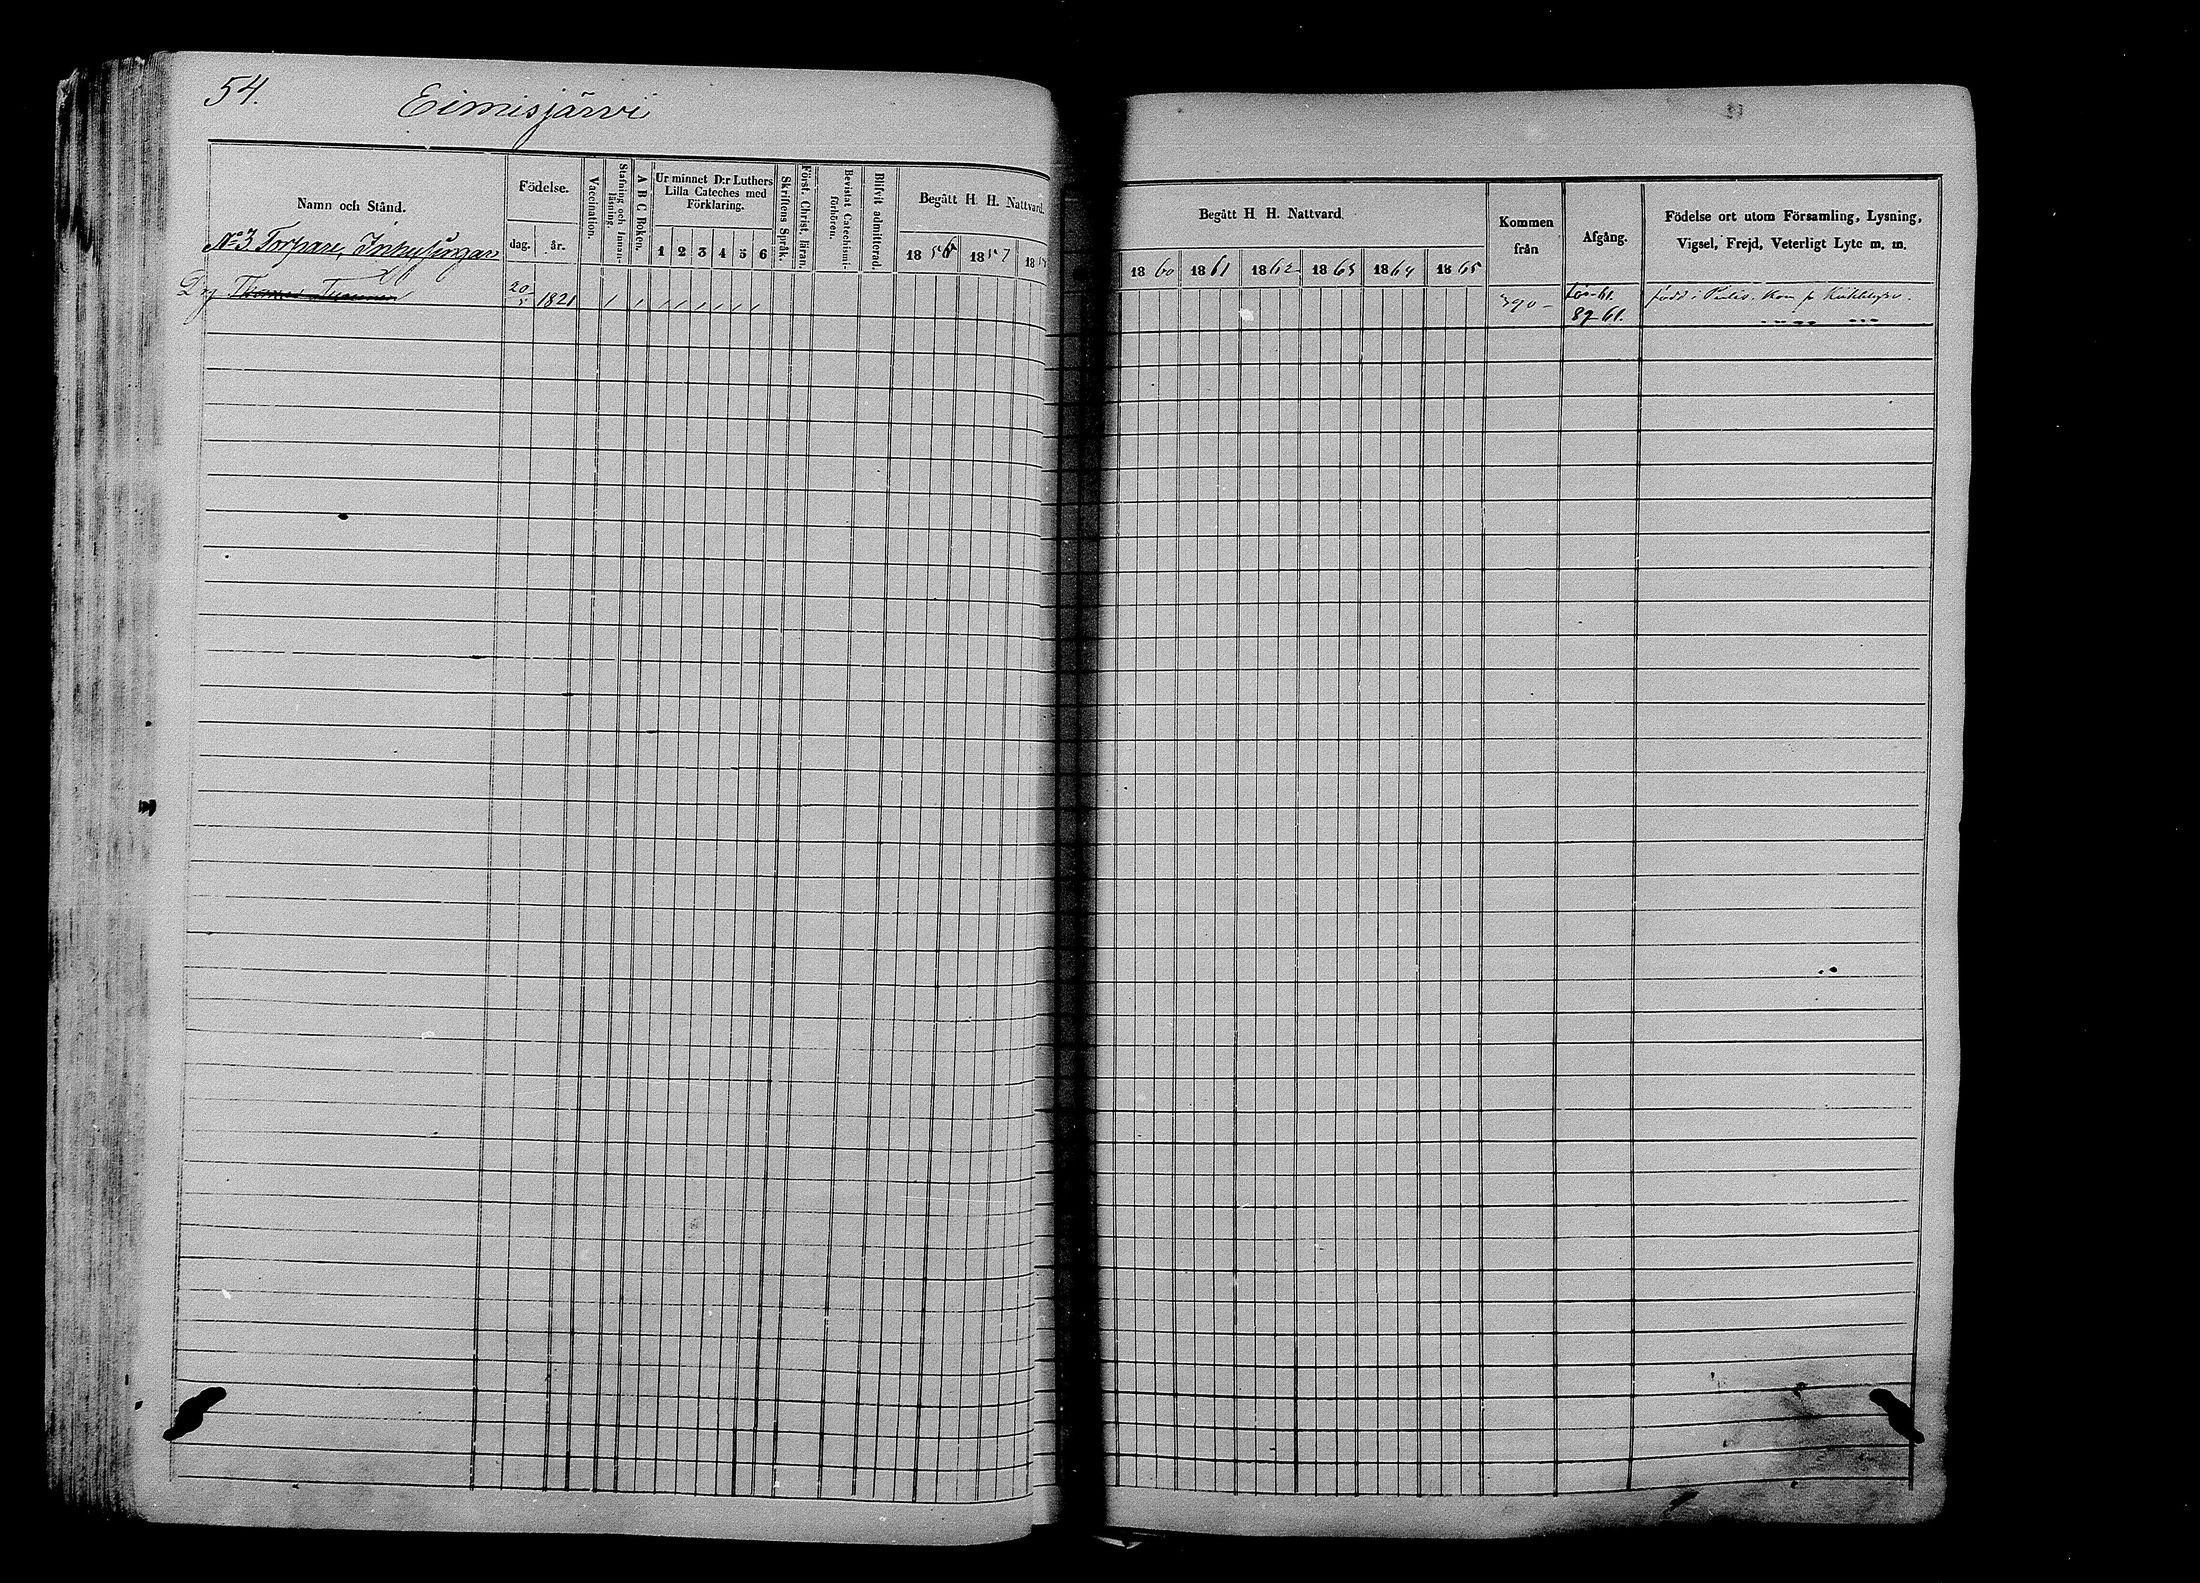 54.
Eimisjärvi
Namn och Stånd.
Födelse.
dag. år.
Vaccination.
Stafning och Innanläsning.
A B C Boken.
Ur minnet D:r Luthers
Lilla Cateches med
Förklaring.
1 2 3 4 5 6
Skriftens Språk.
Först. Christ. läran.
Bevistat Catechismiförhören.
Blifvit admitterad.
Begått H. H. Nattvard.
1856 1857 18
Begått H. H. Nattvard.
1860 1861 1862 1863 1864 1865
Kommen
från
Afgång.
Födelse ort utom Församling, Lysning,
Vigsel, Frejd, Veterligt Lyte m. m.
No 3 Torpare, Inhysingar
Drg 20 1821
390 61.
89 61.
född i